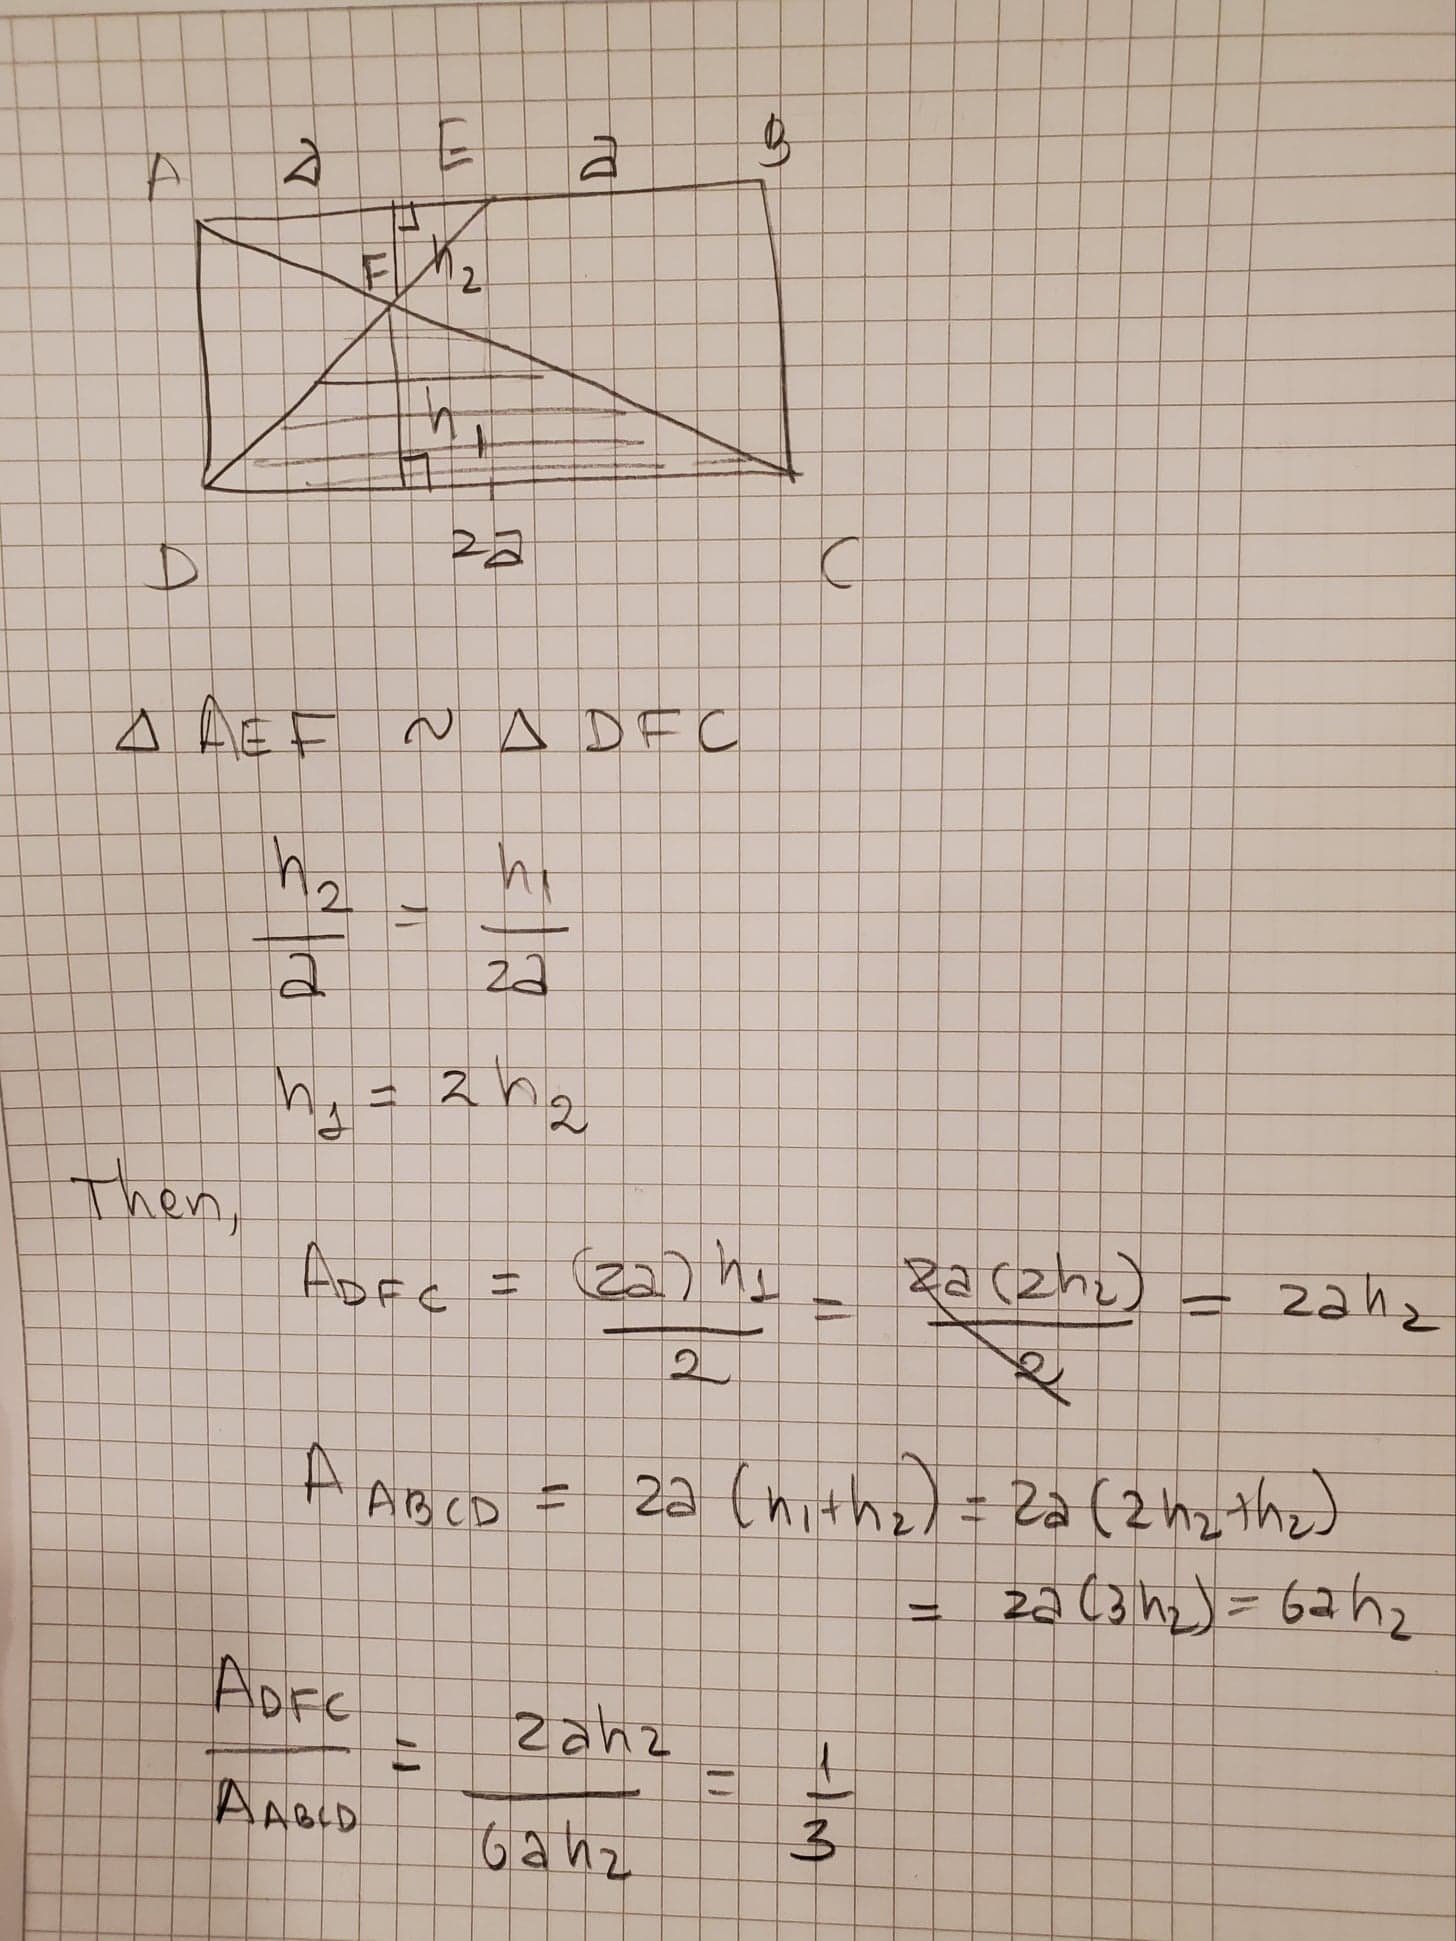 A a E a B
F h₂
h₁
D 2a C
Δ AEF ~ Δ DFC
h₂/a = h₁/2a
h₁ = 2h₂
Then,
A_DFC = (2a)h₁/2 = 2a(2h₂)/2 = 2ah₂
A_ABCD = 2a(h₁+h₂) = 2a(2h₂+h₂)
= 2a(3h₂) = 6ah₂
A_DFC/A_ABCD = 2ah₂/6ah₂ = 1/3